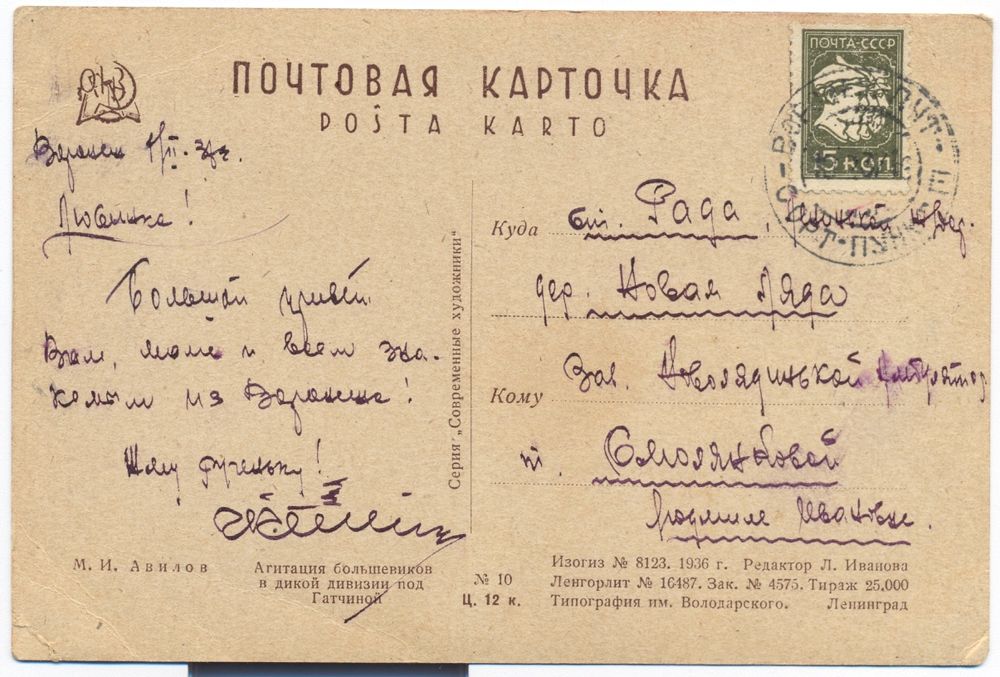 ПОЧТОВАЯ КАРТОЧКА
POŜTA KARTO
ПОЧТА-СССР
15 КОП.
Воронеж
Любинька!
Большой привет
Вам, маме и всем зна-
комым из Воронежа!
Жму рученьку!
Серия „Современные художники“
Куда ст. Рада,
дер. Новая Ляда
Кому Зав. Новолядинской
т. Смолянковой
Людмиле Ивановне.
М. И. Авилов
Агитация большевиков
в дикой дивизии под
Гатчиной
№ 10
Ц. 12 к.
Изогиз № 8123. 1936 г. Редактор Л. Иванова
Ленгорлит № 16487. Зак. № 4575. Тираж 25.000
Типография им. Володарского. Ленинград